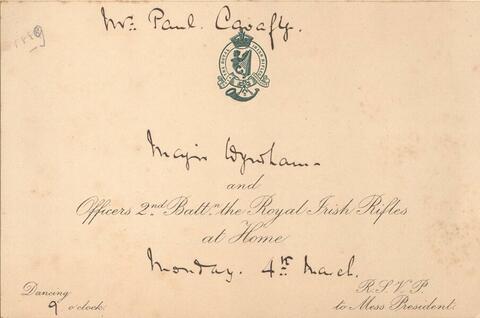 Mr. Paul. Cavafy.
1889
Major Wyndham
and
Officers 2nd. Battn. the Royal Irish Rifles
at Home
Monday. 4th. March.
Dancing
9 o'clock.
R.S.V.P.
to Mess President.